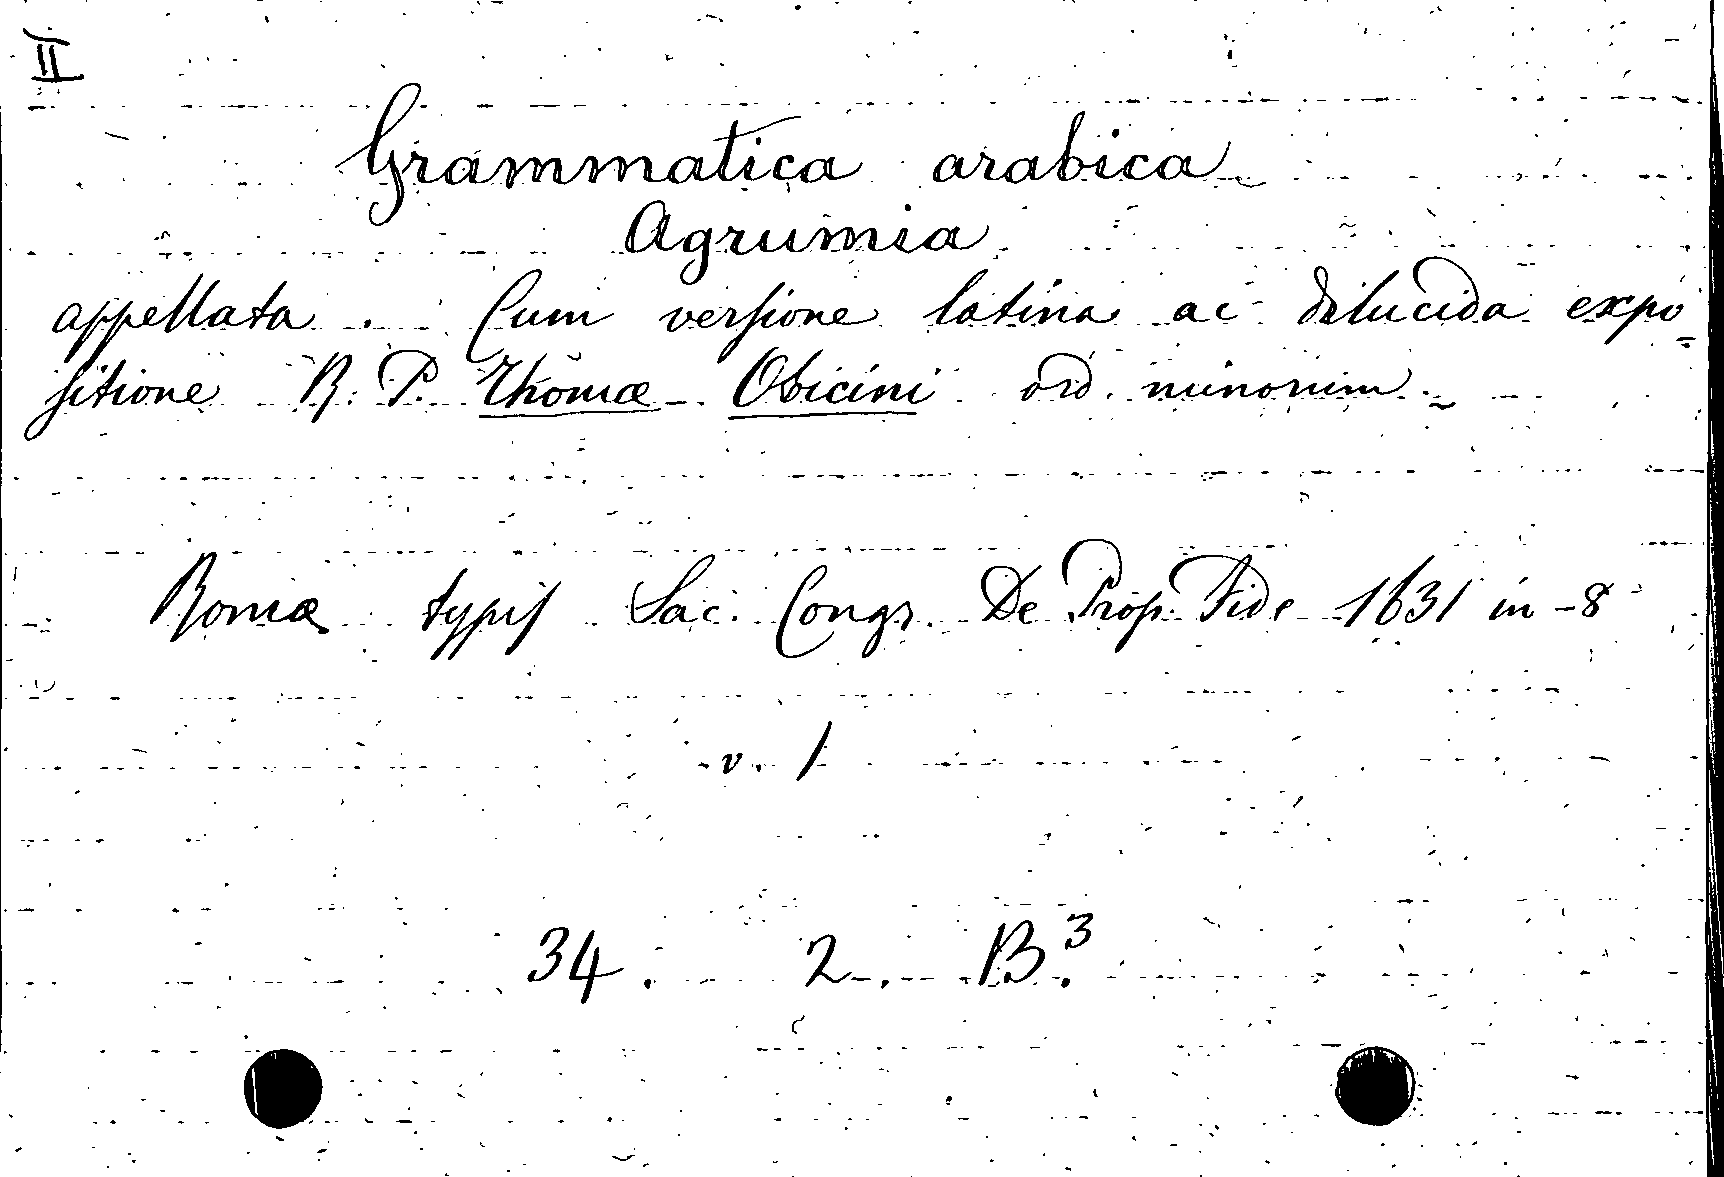 II
Grammatica arabica
Agrumia
appellata. Cum versione latina ac dilucida expo=
sitione R. P. Thomæ Obicini ord. minorum.
Romæ typis Sac. Congr. De Prop. Fide 1631 in-8
v. 1
34. 2. B.3